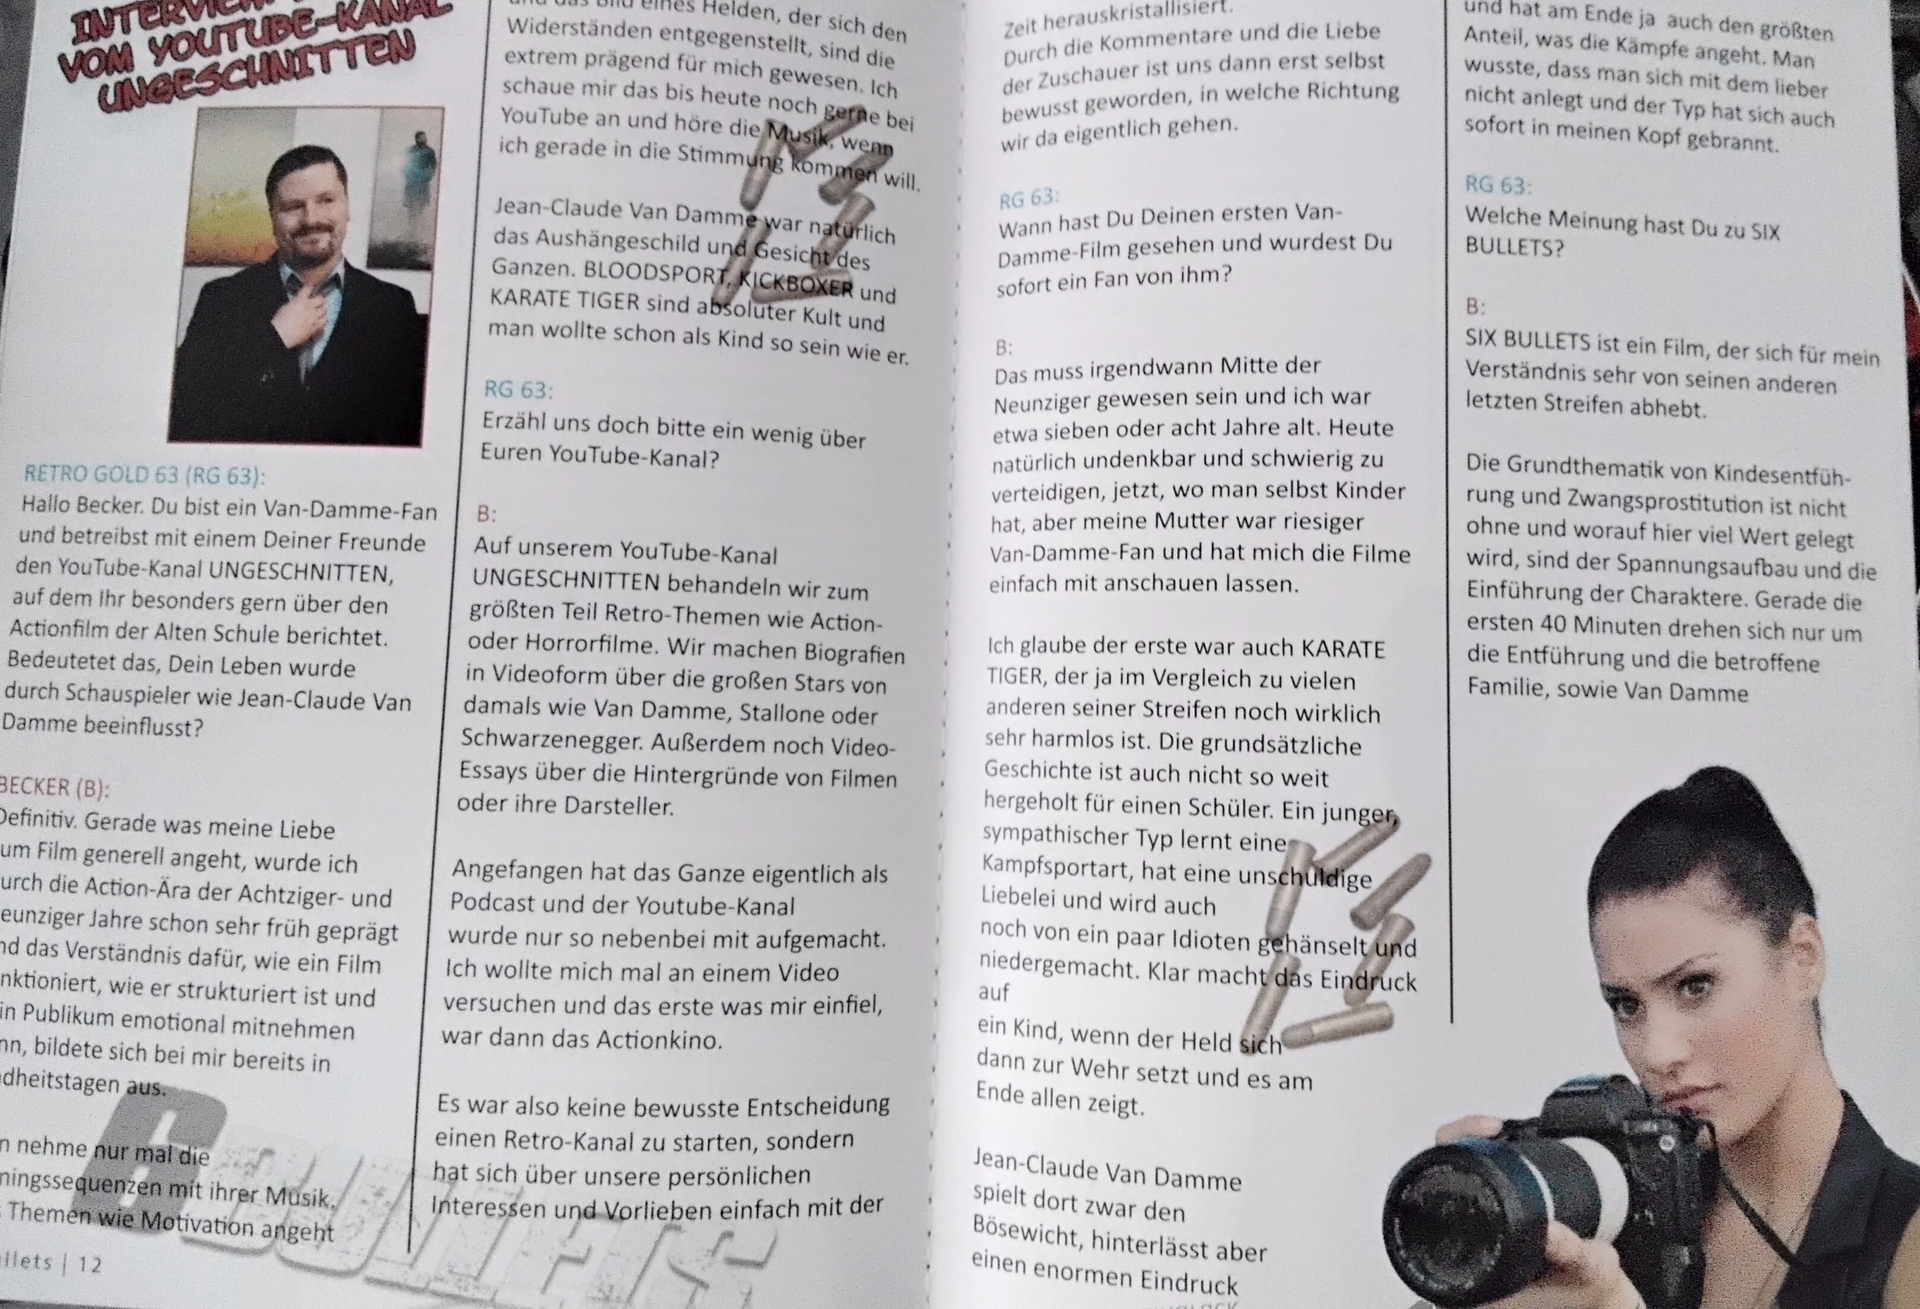 INTERVIEW
VOM YOUTUBE-KANAL
UNGESCHNITTEN
RETRO GOLD 63 (RG 63):
Hallo Becker. Du bist ein Van-Damme-Fan
und betreibst mit einem Deiner Freunde
den YouTube-Kanal UNGESCHNITTEN,
auf dem Ihr besonders gern über den
Actionfilm der Alten Schule berichtet.
Bedeutetet das, Dein Leben wurde
durch Schauspieler wie Jean-Claude Van
Damme beeinflusst?
BECKER (B):
Definitiv. Gerade was meine Liebe
um Film generell angeht, wurde ich
urch die Action-Ära der Achtziger- und
eunziger Jahre schon sehr früh geprägt
nd das Verständnis dafür, wie ein Film
nktioniert, wie er strukturiert ist und
in Publikum emotional mitnehmen
nn, bildete sich bei mir bereits in
dheitstagen aus.
n nehme nur mal die
ningssequenzen mit ihrer Musik.
Themen wie Motivation angeht
6 BULLETS
llets | 12
und das Bild eines Helden, der sich den
Widerständen entgegenstellt, sind die
extrem prägend für mich gewesen. Ich
schaue mir das bis heute noch gerne bei
YouTube an und höre die Musik, wenn
ich gerade in die Stimmung kommen will.
Jean-Claude Van Damme war natürlich
das Aushängeschild und Gesicht des
Ganzen. BLOODSPORT, KICKBOXER und
KARATE TIGER sind absoluter Kult und
man wollte schon als Kind so sein wie er.
RG 63:
Erzähl uns doch bitte ein wenig über
Euren YouTube-Kanal?
B:
Auf unserem YouTube-Kanal
UNGESCHNITTEN behandeln wir zum
größten Teil Retro-Themen wie Action-
oder Horrorfilme. Wir machen Biografien
in Videoform über die großen Stars von
damals wie Van Damme, Stallone oder
Schwarzenegger. Außerdem noch Video-
Essays über die Hintergründe von Filmen
oder ihre Darsteller.
Angefangen hat das Ganze eigentlich als
Podcast und der Youtube-Kanal
wurde nur so nebenbei mit aufgemacht.
Ich wollte mich mal an einem Video
versuchen und das erste was mir einfiel,
war dann das Actionkino.
Es war also keine bewusste Entscheidung
einen Retro-Kanal zu starten, sondern
hat sich über unsere persönlichen
Interessen und Vorlieben einfach mit der
Zeit herauskristallisiert.
Durch die Kommentare und die Liebe
der Zuschauer ist uns dann erst selbst
bewusst geworden, in welche Richtung
wir da eigentlich gehen.
RG 63:
Wann hast Du Deinen ersten Van-
Damme-Film gesehen und wurdest Du
sofort ein Fan von ihm?
B:
Das muss irgendwann Mitte der
Neunziger gewesen sein und ich war
etwa sieben oder acht Jahre alt. Heute
natürlich undenkbar und schwierig zu
verteidigen, jetzt, wo man selbst Kinder
hat, aber meine Mutter war riesiger
Van-Damme-Fan und hat mich die Filme
einfach mit anschauen lassen.
Ich glaube der erste war auch KARATE
TIGER, der ja im Vergleich zu vielen
anderen seiner Streifen noch wirklich
sehr harmlos ist. Die grundsätzliche
Geschichte ist auch nicht so weit
hergeholt für einen Schüler. Ein junger,
sympathischer Typ lernt eine
Kampfsportart, hat eine unschuldige
Liebelei und wird auch
noch von ein paar Idioten gehänselt und
niedergemacht. Klar macht das Eindruck
auf
ein Kind, wenn der Held sich
dann zur Wehr setzt und es am
Ende allen zeigt.
Jean-Claude Van Damme
spielt dort zwar den
Bösewicht, hinterlässt aber
einen enormen Eindruck
und hat am Ende ja auch den größten
Anteil, was die Kämpfe angeht. Man
wusste, dass man sich mit dem lieber
nicht anlegt und der Typ hat sich auch
sofort in meinen Kopf gebrannt.
RG 63:
Welche Meinung hast Du zu SIX
BULLETS?
B:
SIX BULLETS ist ein Film, der sich für mein
Verständnis sehr von seinen anderen
letzten Streifen abhebt.
Die Grundthematik von Kindesentfüh-
rung und Zwangsprostitution ist nicht
ohne und worauf hier viel Wert gelegt
wird, sind der Spannungsaufbau und die
Einführung der Charaktere. Gerade die
ersten 40 Minuten drehen sich nur um
die Entführung und die betroffene
Familie, sowie Van Damme